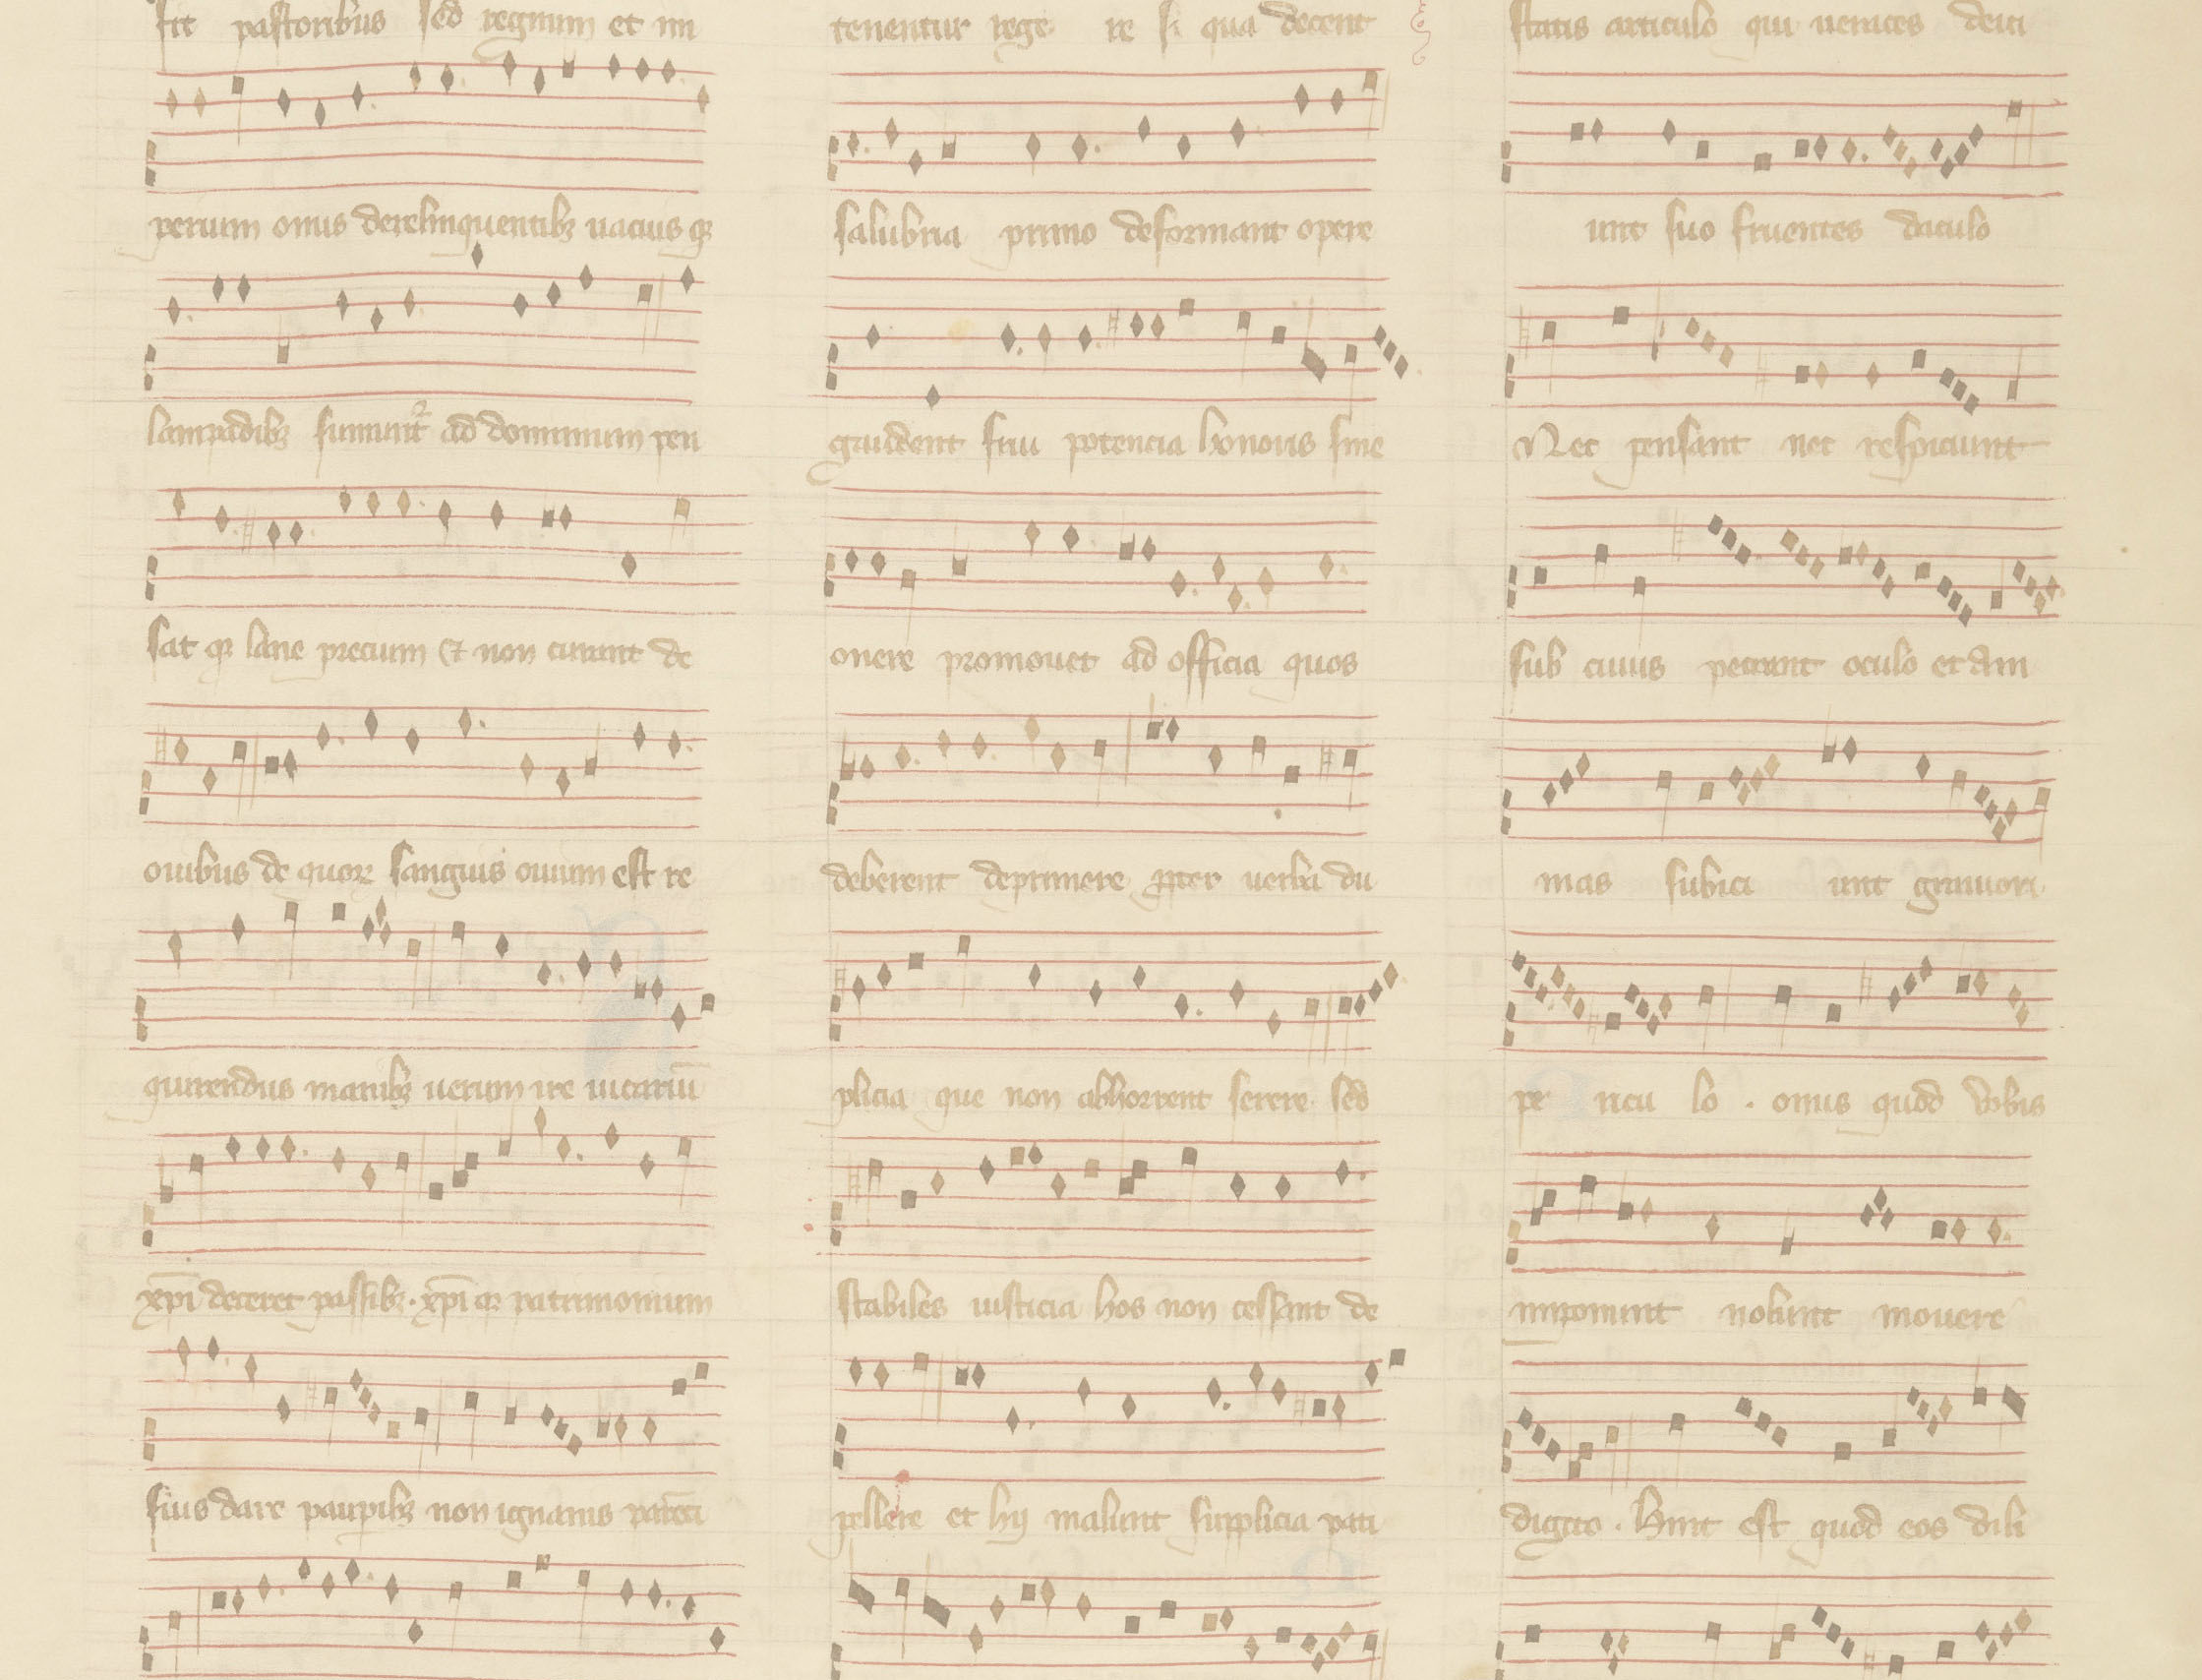 sit pastoribus sed regnum et im
perium onus derelinquentibꝫ uacuis qꝫ
lampadibꝫ ad dominium pen
sat qꝫ lane precium et non curant de
ouibus de quorꝫ sanguis ouium est re
quirendus manibꝫ uerum ire uicariū
xp̄i deceret passibꝫ. xp̄i qꝫ patrimonium
suis dare paupibꝫ non ignauis
tenentur rege re si qua decent
salubria primo deformant opere
gaudent frui potencia honoris sine
onere promouet ad officia quos
deberent deprimere ꝓpter uerba du
plicia que non abhorrent serere sed
stabiles iusticia hos non cessant de
pellere et hij malunt supplicia pati
statis articulo qui deici
unt suo fruentes baculo
Nec pensant nec respiciunt
sub cuius peccant oculo et am
mas subici unt grauiori
pe ricu lo . onus quod uobis
imponunt nolunt mouere
digito . Hinc est quod eos dili